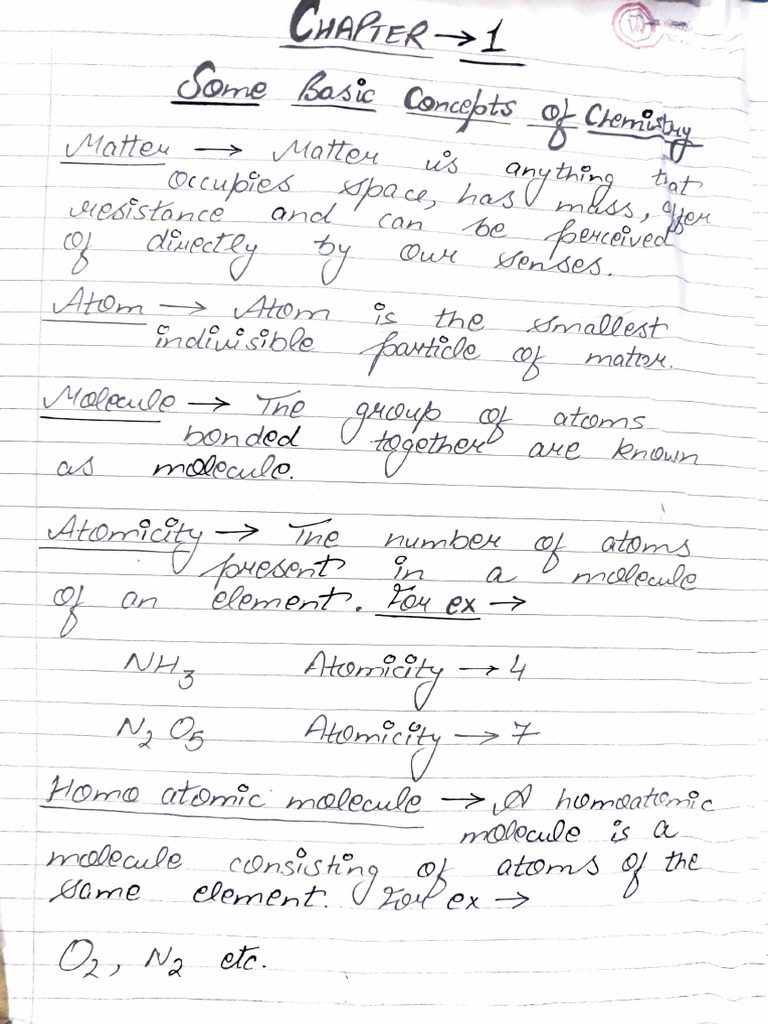 CHAPTER → 1
Some Basic Concepts of Chemistry
Matter → Matter is anything that
occupies space, has mass, offer
resistance and can be perceived
of directly by our senses.
Atom → Atom is the smallest
indivisible particle of matter.
Molecule → The group of atoms
bonded together are known
as molecule.
Atomicity → The number of atoms
present in a molecule
of an element. For ex →
NH₃ Atomicity → 4
N₂O₅ Atomicity → 7
Homo atomic molecule → A homoatomic
molecule is a
molecule consisting of atoms of the
same element. For ex →
O₂, N₂ etc.